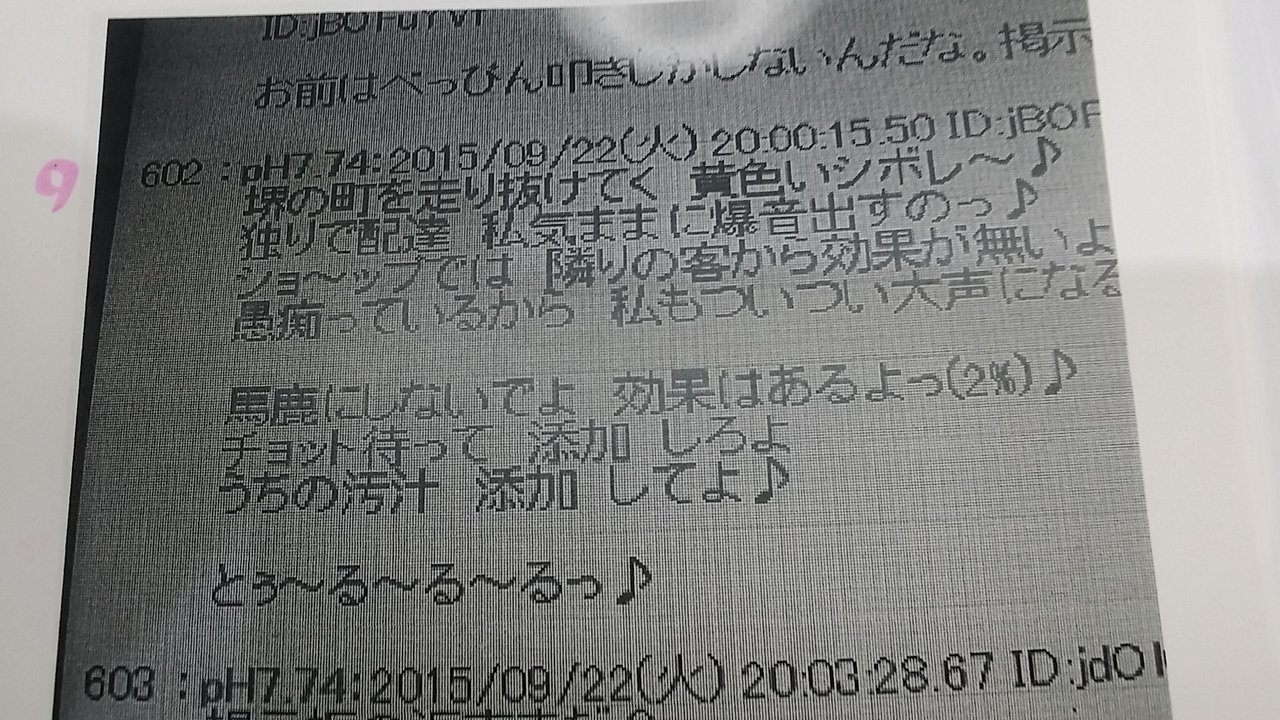 お前はべっぴん叩きしかしないんだな。掲示
9
602 :pH7.74:2015/09/22(火) 20:00:15.50 ID:jBOF
堺の町を走り抜けてく 黄色いシボレ～♪
独りで配達 私気ままに爆音出すのっ♪
ショ～ップでは 隣りの客から効果が無いよ
愚痴っているから 私もついつい大声になる
馬鹿にしないでよ 効果はあるよっ(2%)♪
チョット待って 添加 しろよ
うちの汚汁 添加 してよ♪
とぅ～る～る～るっ♪
603 :pH7.74:2015/09/22(火) 20:03:28.67 ID:jdO